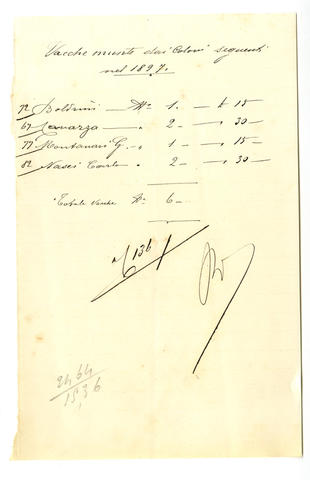 Vacche munte dai Coloni seguenti
nel 1897.
72 Boldrini N.º 1. — £ 15
67 " 2 — " 30 —
77 Montanari G. " 1 — " 15 —
82 Nasci " 2 — " 30 —
Totale Vacche N.º 6 —
136
24 64
15,36